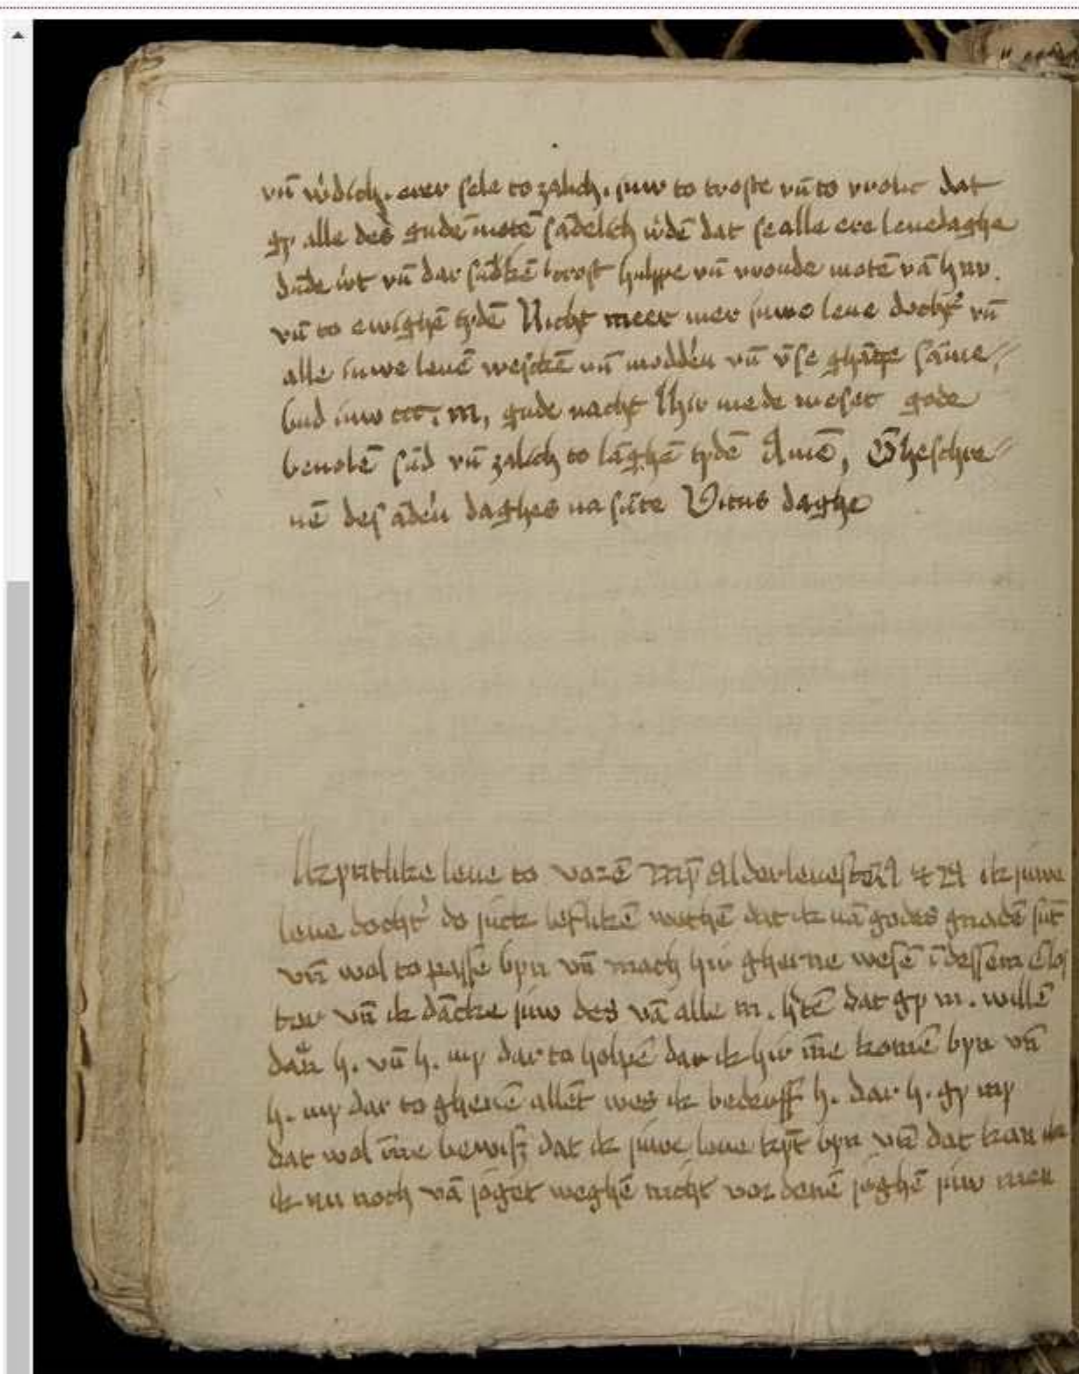 vn̄ w'dich. ewer sele to zalich. juw to troste vn̄ to vrolic dat
gy alle des gudē motē sādelich w'dē dat se alle ere leuedaghe
vn̄ dar trost hulppe vn̄ vroude motē vā
vn̄ to ewighē tydē Nicht meer mer juwe leue docht' vn̄
alle iuwe leuē vn̄ vn̄ v̄se same
bud iuw m, gude nacht Hir mede weset gode
beuolē sūd vn̄ zalich to lāghē tydē Amē, Gheschre
uē des ādern daghes na sūte Vitus daghe
leue to vorē Myn̄ Alderleueste ik juwe
leue docht' do juck lefliken wethē dat ik vā godes gnadē sūt
vn̄ wol to passe byn vn̄ mach hir gherne wesē ī dessem Clos
ter vn̄ ik dācke juw des vā alle m. h'tē dat gy m. willē
h. vn̄ h. my dar to holpē dar ik hir īne komē byn vn̄
h. my dar to gheuē allēt wes ik bedroff h. dar h. gy my
dat wol īne bewist dat ik juwe leue kyt byn vn̄ dat kan ik
ik nu noch vā joget weghē nicht vordenē jeghē juw men